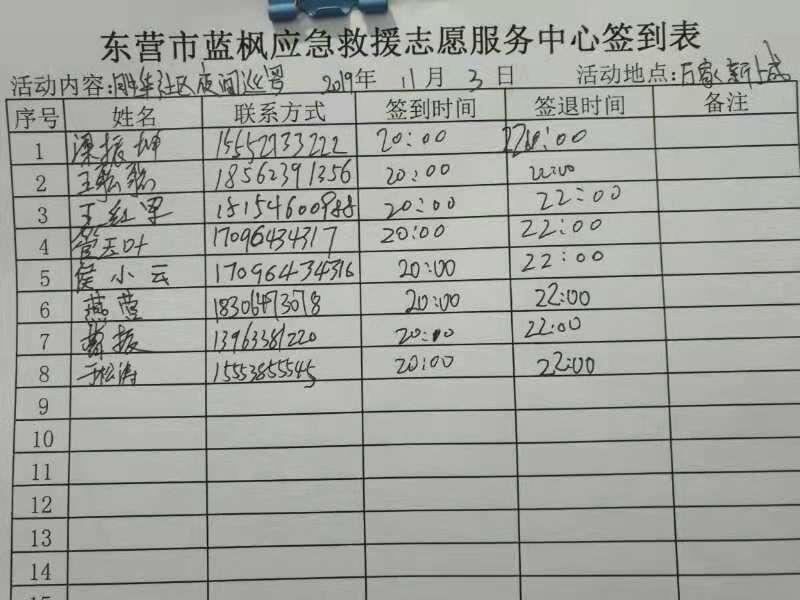 东营市蓝枫应急救援志愿服务中心签到表
活动内容: 社区夜间巡 2019年 11月 3日 活动地点:万家新城
序号 姓名 联系方式 签到时间 签退时间 备注
1 梁振坤 15552933222 20:00 22:00
2 18562391356 20:00 22:00
3 王红军 18154600988 20:00 22:00
4 17096434317 20:00 22:00
5 侯小云 17096434316 20:00 22:00
6 燕莹 18306473078 20:00 22:00
7 振 13963381220 20:00 22:00
8 于松涛 15553855545 20:00 22:00
9
10
11
12
13
14